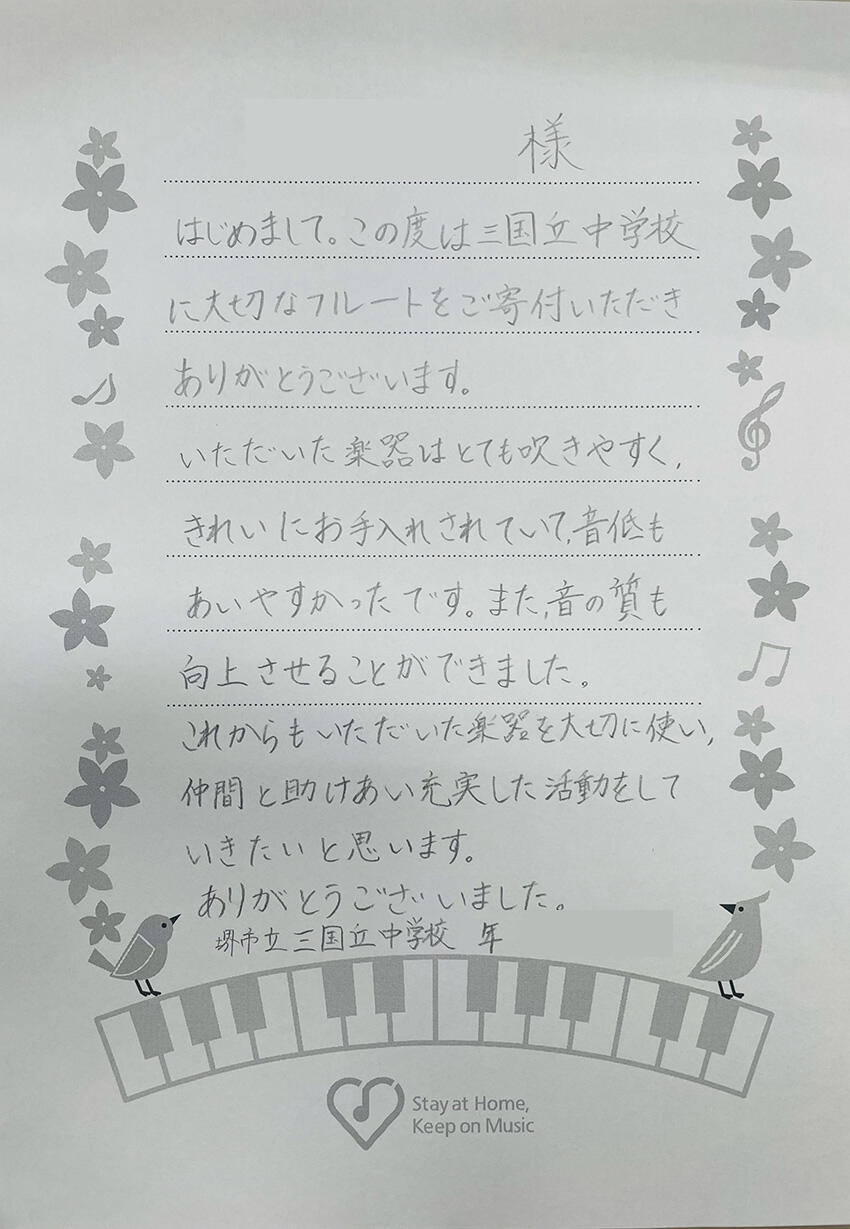 様
はじめまして。この度は三国丘中学校
に大切なフルートをご寄付いただき
ありがとうございます。
いただいた楽器はとても吹きやすく,
きれいにお手入れされていて,音低も
あいやすかったです。また,音の質も
向上させることができました。
これからもいただいた楽器を大切に使い,
仲間と助けあい充実した活動をして
いきたいと思います。
ありがとうございました。
堺市立三国丘中学校 年
Stay at Home,
Keep on Music